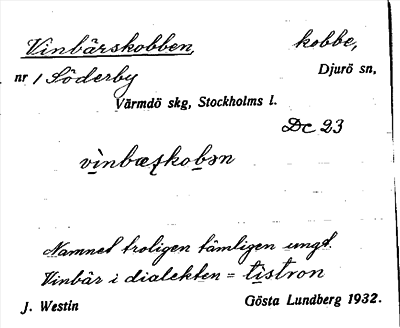 Vinbärskobben, kobbe,
nr 1 Söderby Djurö sn,
Värmdö skg, Stockholms l.
Dc 23
vìnbæʂkobən
Namnet troligen tämligen ungt.
Vinbär i dialekten = tistron
J. Westin Gösta Lundberg 1932.